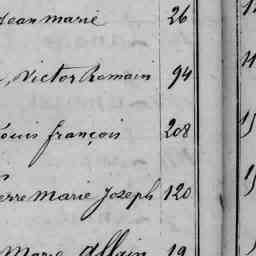 Jean Marie 26
, Victor Romain 94
Louis françois 208
Pierre Marie Joseph 120
Marie Allain 19